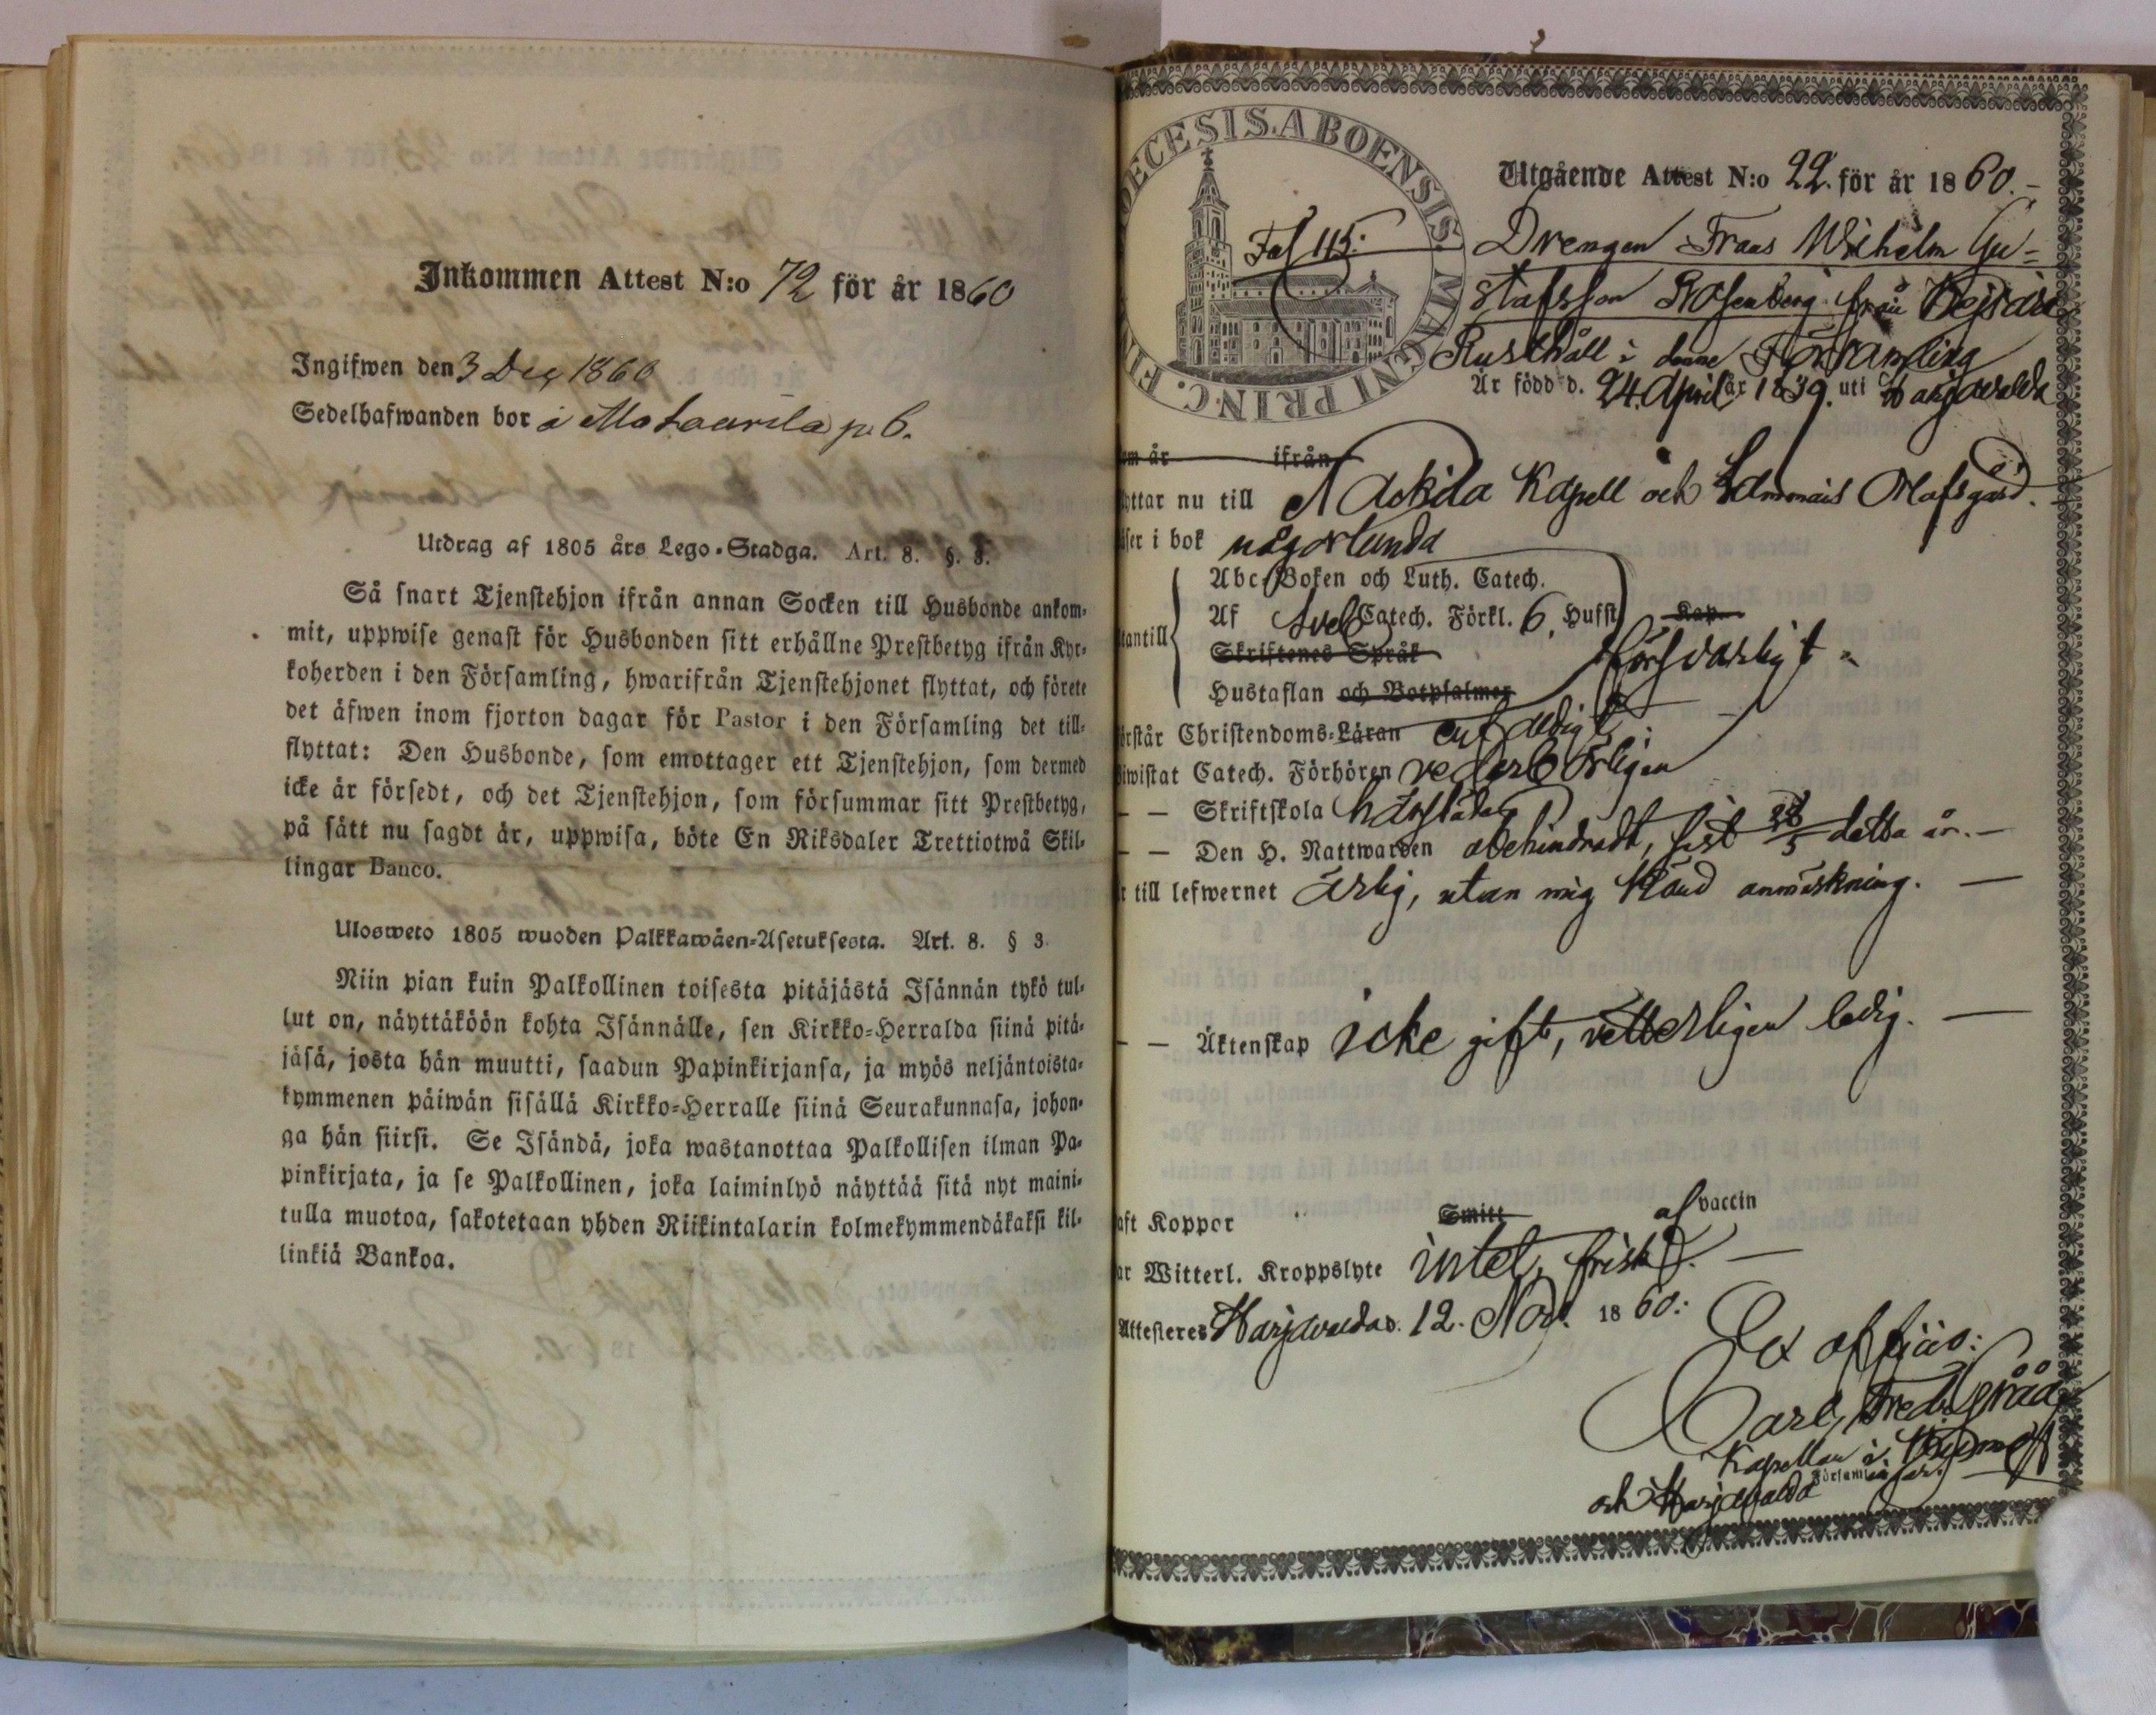 Inkommen Attest N:o 72 för år 1860
Ingifwen den 3 Dec 1860
Sedelhafwanden bor å p. 6.
Utdrag af 1805 års Lego-Stadga. Art. 8. §. 3.
Så snart Tjenstehjon ifrån annan Socken till Husbonde ankom-
mit, uppwise genast för Husbonden sitt erhållne Prestbetyg ifrån Kyr-
koherden i den Församling, hwarifrån Tjenstehjonet flyttat, och förete
det äfwen inom fjorton dagar för Pastor i den Församling det till-
flyttat: Den Husbonde, som emottager ett Tjenstehjon, som dermed
icke är försedt, och det Tjenstehjon, som försummar sitt Prestbetyg,
på sätt nu sagdt är, uppwisa, böte En Riksdaler Trettiotwå Skil-
lingar Banco.
Ulosweto 1805 wuoden Palkkawäen-Asetuksesta. Art. 8. § 3.
Niin pian kuin Palkollinen toisesta pitäjästä Isännän tykö tul-
lut on, näyttäköön kohta Isännälle, sen Kirkko-Herralda siinä pitä-
jäsä, josta hän muutti, saadun Papinkirjansa, ja myös neljäntoista-
kymmenen päiwän sisällä Kirkko-Herralle siinä Seurakunnasa, johon-
ga hän siirsi. Se Isändä, joka wastanottaa Palkollisen ilman Pa-
pinkirjata, ja se Palkollinen, joka laiminlyö näyttää sitä nyt maini-
tulla muotoa, sakotetaan yhden Riikintalarin kolmekymmendäkaksi kil-
linkiä Bankoa.
ŒCESIS. ABOENSIS. MAGNI PRINC. FIN
Fol 115:
Utgående Attest N:o 22. för år 1860.-
Drengen Frans Wilhelm Gu=
stafsson Rosenberg från
Rusthåll i denne Församling
Är född d. 24. April år 1839. uti Harjavalda
om år ifrån
yttar nu till Nackila Kapell och Olafsgård.
äser i bok någorlunda
Abc-Boken och Luth. Catech.
Af Sveb Catech. Förkl. 6, Hufst Kap.
utantill
Skriftenes Språk försvarligt
Hustaflan och Botpsalmer
örstår Christendoms-Läran enfaldigt
iwistat Catech. Förhören vederbörligen
— — Skriftskola härstädes
— — Den H. Nattwarden obehindradt, sist detta år.—
r till lefwernet ärlig, utan mig känd anmärkning. —
— — Äktenskap icke gift, vetterligen ledig. —
aft Koppor Smitt af vaccin
ar Witterl. Kroppslyte intet, frisk. —
Attesteres Harjavalda d. 12. Nov. 1860.:
Ex officio:
Carl Fredr.
Kapellan i
och Harjavalda Församlingar.